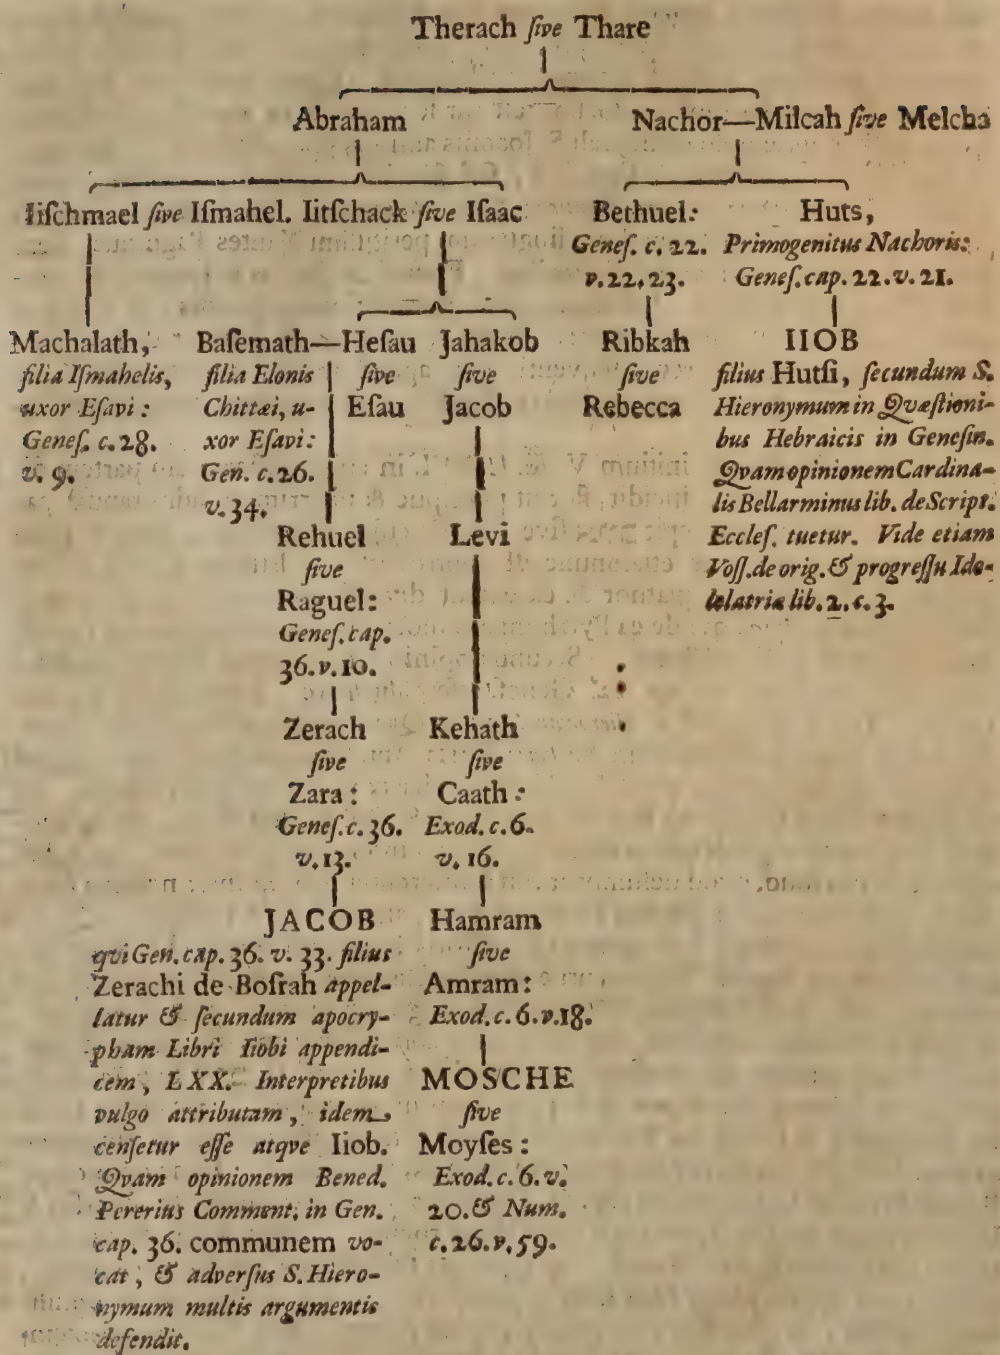 Therach ſive Thare
Abraham
Nachor—Milcah ſive Melcha
Iiſchmael ſive Iſmahel. Iitſchack ſive Iſaac
Bethuel:
Geneſ. c. 22.
v. 22, 23.
Huts,
Primogenitus Nachoris:
Geneſ. cap. 22. v. 21.
Machalath,
filia Iſmahelis,
uxor Eſavi:
Geneſ. c. 28.
v. 9.
Baſemath—Heſau
filia Elonis
Chittæi, u-
xor Eſavi:
Gen. c. 26.
v. 34.
ſive
Eſau
Jahakob
ſive
Jacob
Ribkah
ſive
Rebecca
IIOB
filius Hutſi, ſecundum S.
Hieronymum in Qvæſtioni-
bus Hebraicis in Geneſin.
Qvam opinionem Cardina-
lis Bellarminus lib. de Script.
Eccleſ. tuetur. Vide etiam
Voſſ. de orig. & progreſſu Ido-
lelatriæ lib. 2. c. 3.
Rehuel
ſive
Raguel:
Geneſ. cap.
36. v. 10.
Levi
Zerach
ſive
Zara:
Geneſ. c. 36.
v. 13.
Kehath
ſive
Caath:
Exod. c. 6.
v. 16.
JACOB
qvi Gen. cap. 36. v. 33. filius
Zerachi de Boſrah appel-
latur & ſecundum apocry-
pham Libri Iiobi appendi-
cem, LXX. Interpretibus
vulgo attributam, idem
cenſetur eſſe atqve Iiob.
Qvam opinionem Bened.
Pererius Comment. in Gen.
cap. 36. communem vo-
cat, & adverſus S. Hiero-
nymum multis argumentis
defendit.
Hamram
ſive
Amram:
Exod. c. 6. v. 18.
MOSCHE
ſive
Moyſes:
Exod. c. 6. v.
20. & Num.
c. 26. v. 59.